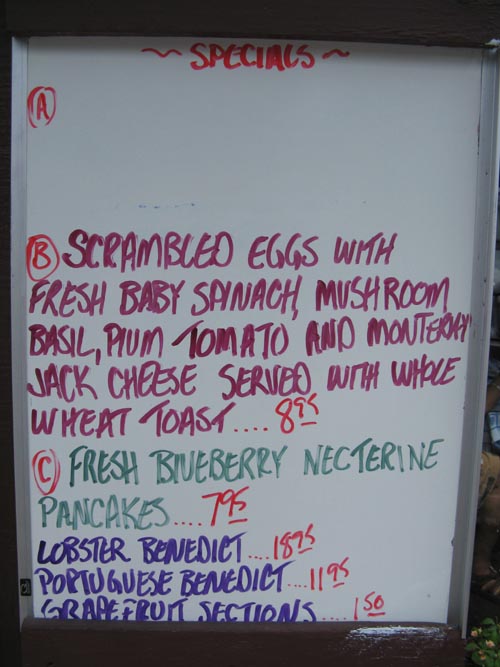 ~ SPECIALS ~
A
B SCRAMBLED EGGS WITH
FRESH BABY SPINACH, MUSHROOM
BASIL, PLUM TOMATO AND MONTEREY
JACK CHEESE SERVED WITH WHOLE
WHEAT TOAST .... 8.95
C FRESH BLUEBERRY NECTERINE
PANCAKES .... 7.95
LOBSTER BENEDICT .... 18.95
PORTUGUESE BENEDICT ... 11.95
GRAPEFRUIT SECTIONS .... 1.50